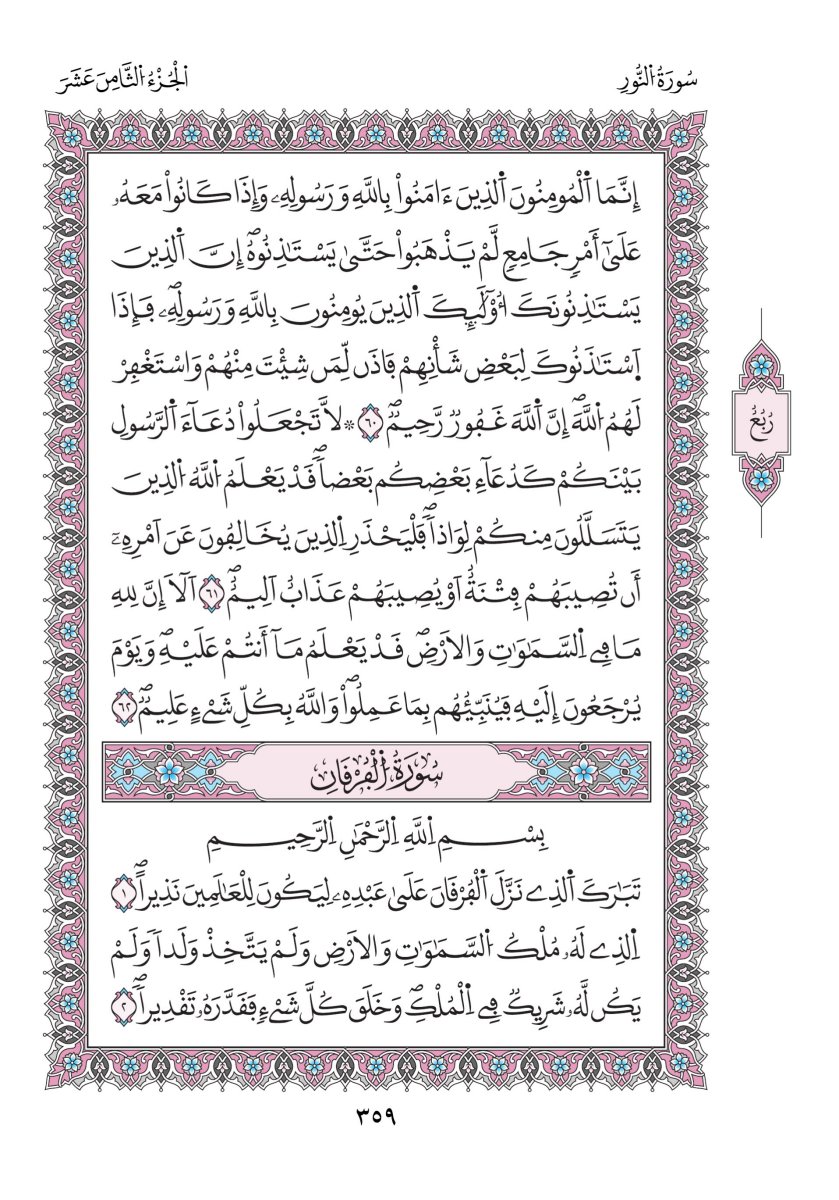 سُورَةُ اُ۬لنُّورِ
اَ۬لْجُزْءُ اُ۬لثَّامِنَ عَشَرَ
إِنَّمَا اَ۬لْمُومِنُونَ اَ۬لذِينَ ءَامَنُواْ بِاللَّهِ وَرَسُولِهِۦ وَإِذَا كَانُواْ مَعَهُۥ
عَلَىٰٓ أَمْرٖ جَامِعٖ لَّمْ يَذْهَبُواْ حَتَّىٰ يَسْتَٰذِنُوهُۖ إِنَّ اَ۬لذِينَ
يَسْتَٰذِنُونَكَ أُوْلَٰٓئِكَ اَ۬لذِينَ يُومِنُونَ بِاللَّهِ وَرَسُولِهِۦۖ فَإِذَا
اَ۪سْتَٰذَنُوكَ لِبَعْضِ شَأْنِهِمْ فَاذَن لِّمَن شِئْتَ مِنْهُمْ وَاسْتَغْفِرْ
لَهُمُ اُ۬للَّهَۖ إِنَّ اَ۬للَّهَ غَفُورٞ رَّحِيمٞۖ ٦٠ ۞ لَّا تَجْعَلُواْ دُعَآءَ اَ۬لرَّسُولِ
بَيْنَكُمْ كَدُعَآءِ بَعْضِكُم بَعْضاٗۖ قَدْ يَعْلَمُ اُ۬للَّهُ اُ۬لذِينَ
يَتَسَلَّلُونَ مِنكُمْ لِوَاذاٗۖ فَلْيَحْذَرِ اِ۬لذِينَ يُخَالِفُونَ عَنَ اَمْرِهِۦٓ
أَن تُصِيبَهُمْ فِتْنَةٌ اَوْ يُصِيبَهُمْ عَذَابٌ اَلِيمٌۖ ٦١ اَلَآ إِنَّ لِلهِ
مَا فِے اِ۬لسَّمَٰوَٰتِ وَالَارْضِۖ قَدْ يَعْلَمُ مَآ أَنتُمْ عَلَيْهِۖ وَيَوْمَ
يُرْجَعُونَ إِلَيْهِ فَيُنَبِّئُهُم بِمَا عَمِلُواْۖ وَاللَّهُ بِكُلِّ شَےْءٍ عَلِيمٞۖ ٦٢
سُورَةُ اُ۬لْفُرْقَانِ
بِسْمِ اِ۬للَّهِ اِ۬لرَّحْمَٰنِ اِ۬لرَّحِيمِ
تَبَٰرَكَ اَ۬لذِے نَزَّلَ اَ۬لْفُرْقَانَ عَلَىٰ عَبْدِهِۦ لِيَكُونَ لِلْعَٰلَمِينَ نَذِيراًۖ ١
اِ۬لذِے لَهُۥ مُلْكُ اُ۬لسَّمَٰوَٰتِ وَالَارْضِ وَلَمْ يَتَّخِذْ وَلَداٗ وَلَمْ
يَكُن لَّهُۥ شَرِيكٞ فِے اِ۬لْمُلْكِۖ وَخَلَقَ كُلَّ شَےْءٖ فَقَدَّرَهُۥ تَقْدِيراٗۖ ٢
رُبُعُ
٣٥٩